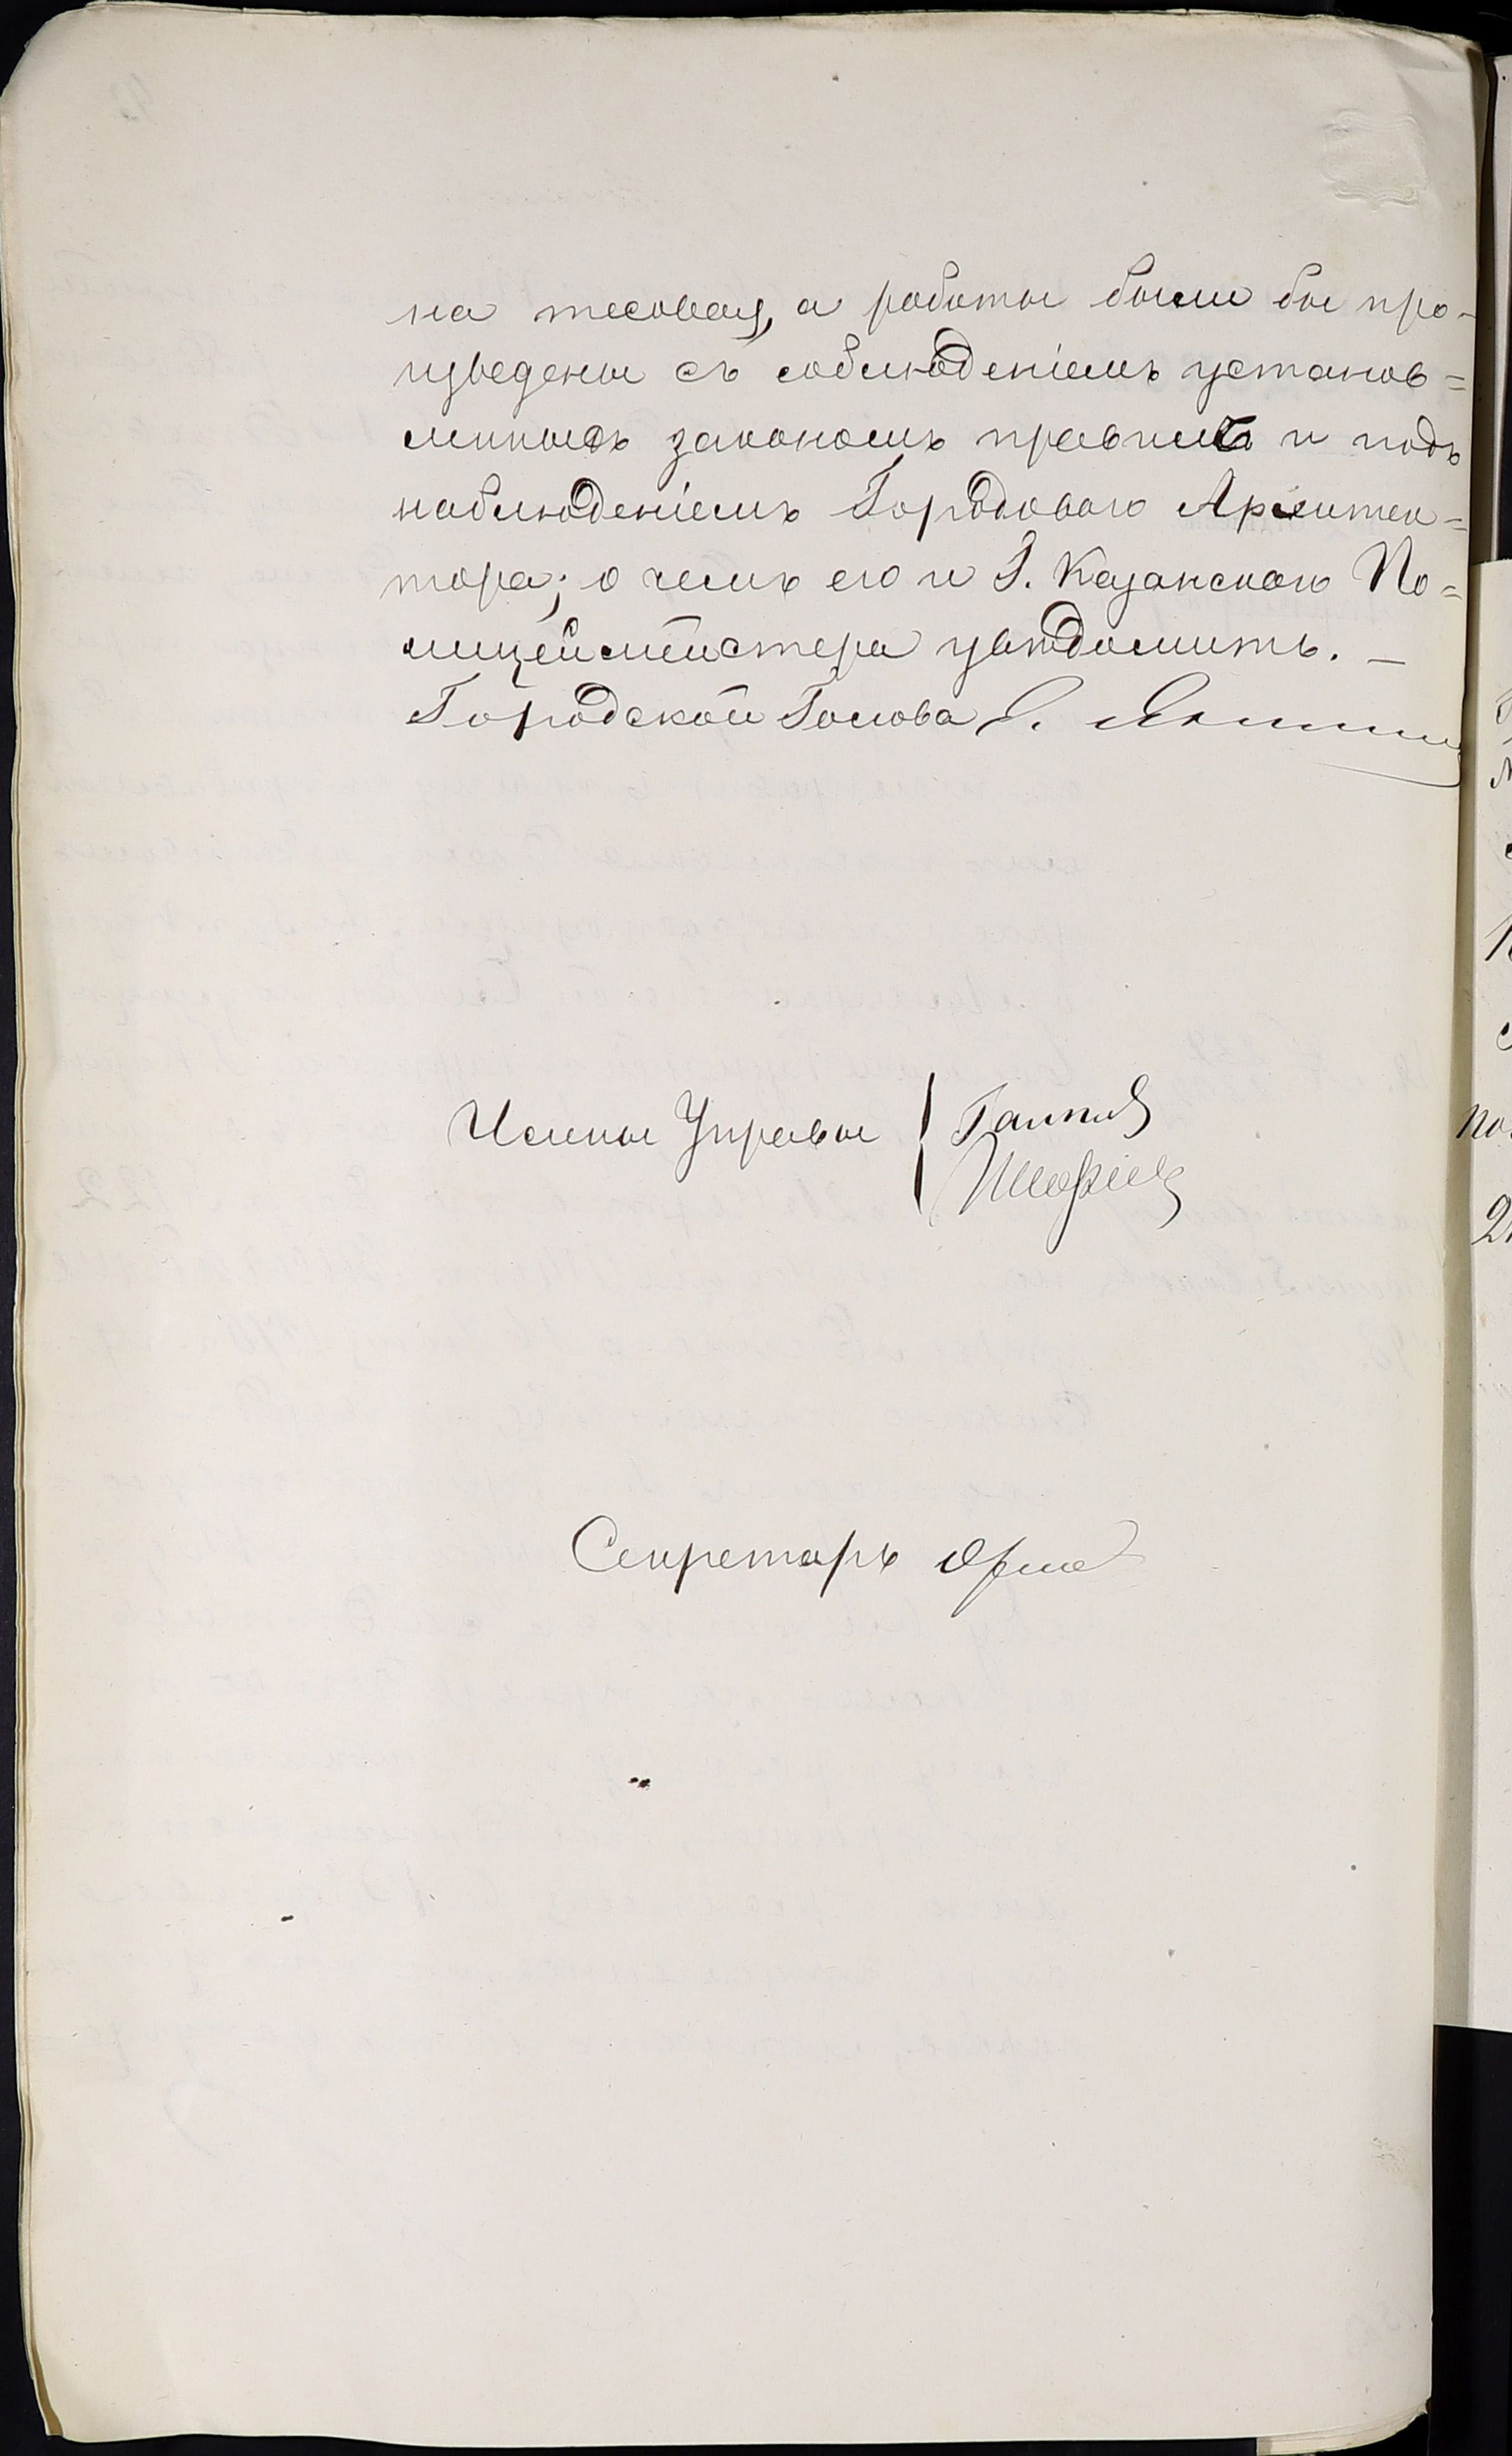 на тесовая, а работы были бы про-
изведены съ соблюденіемъ установ=
ленныхъ закономъ правилъ и подъ
наблюденіемъ Городоваго Архитек=
тора; о чемъ его и Г. Казанскаго По=
лицеймейстера увѣдомить. —
Городской Голова
Члены Управы
Секретарь